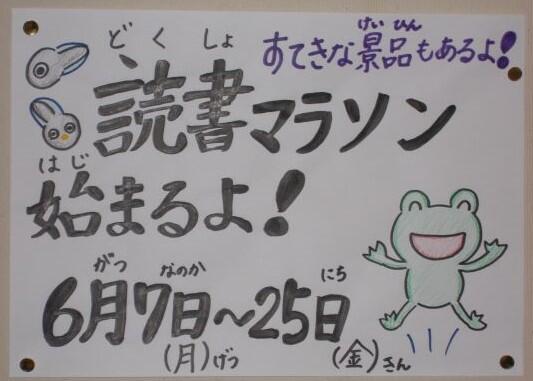 すてきな景品もあるよ!
けいひん
どくしょ
読書マラソン
はじ
始まるよ!
がつ なのか にち
6月7日～25日
(月)げつ (金)きん